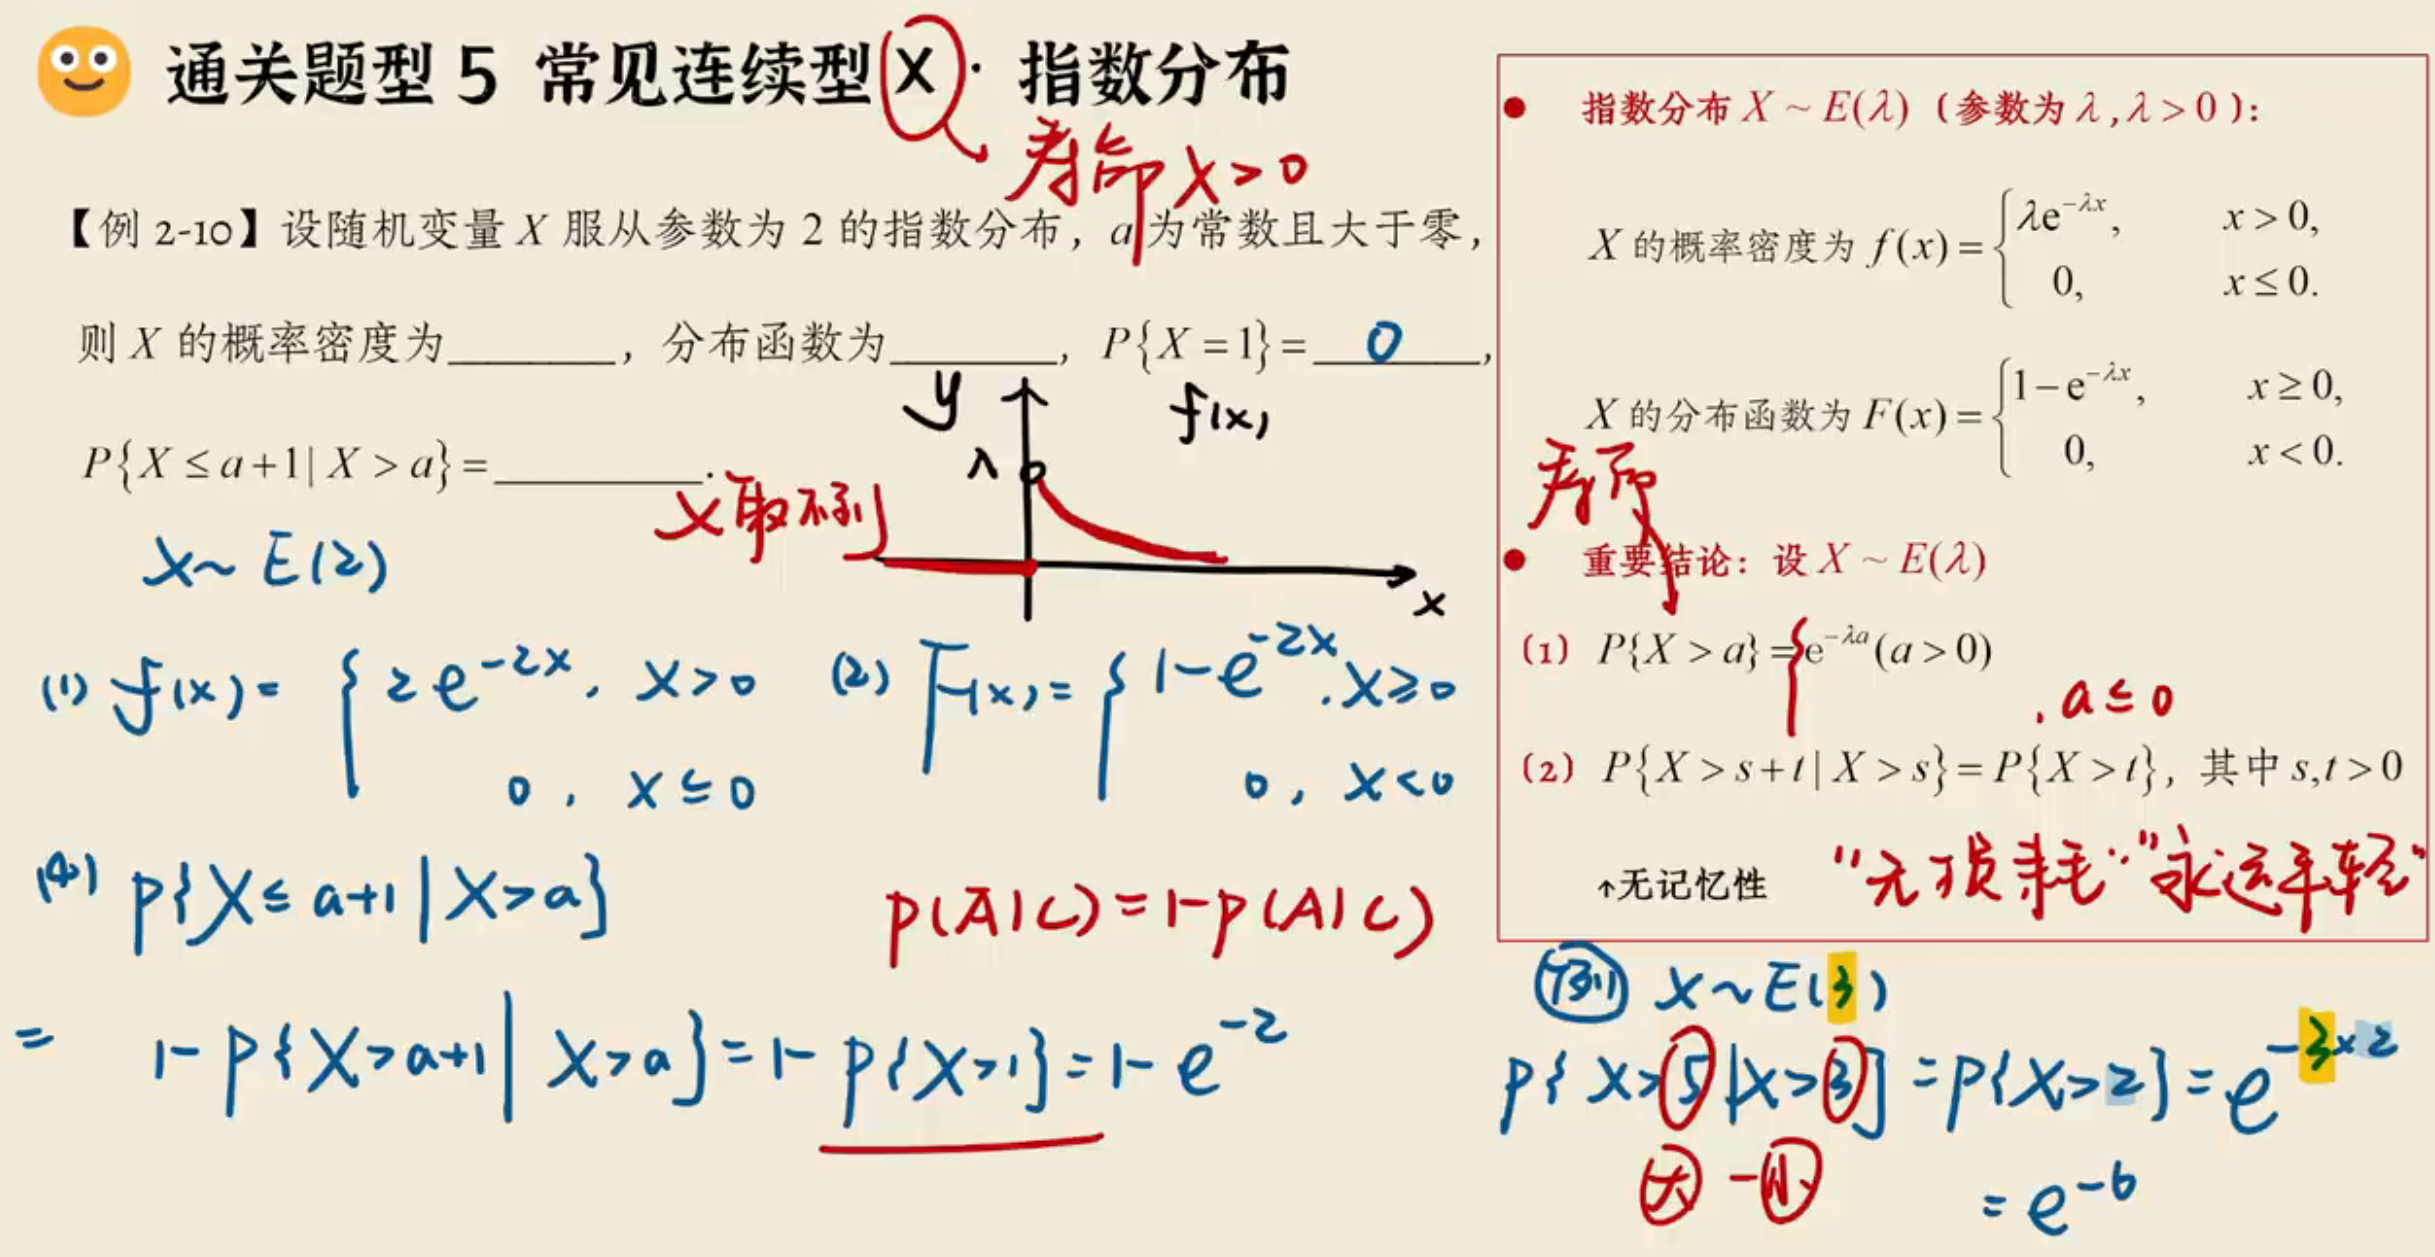 通关题型 5 常见连续型 X · 指数分布
寿命 X>0
【例 2-10】设随机变量 X 服从参数为 2 的指数分布，a 为常数且大于零，
则 X 的概率密度为________，分布函数为________，P{X=1}=___0___，
P{X≤a+1|X>a}=__________.
y
f(x)
λ
X取不到
x
X~E(2)
(1) f(x)= { 2e^{-2x}, x>0
0, x≤0
(2) F(x)= { 1-e^{-2x}, x≥0
0, x<0
(4) P{X≤a+1|X>a}
P(Ā|C)=1-P(A|C)
= 1-P{X>a+1|X>a}=1-P{X>1}=1-e^{-2}
● 指数分布 X~E(λ)（参数为 λ,λ>0）：
X 的概率密度为 f(x)= { λe^{-λx}, x>0,
0, x≤0.
X 的分布函数为 F(x)= { 1-e^{-λx}, x≥0,
0, x<0.
寿命
● 重要结论：设 X~E(λ)
（1）P{X>a}= { e^{-λa}(a>0)
, a≤0
（2）P{X>s+t|X>s}=P{X>t}，其中 s,t>0
↑无记忆性 "无损耗" "永远年轻"
例 X~E(3)
P{X>5|X>3}=P{X>2}=e^{-3×2}
大 - 小
=e^{-6}